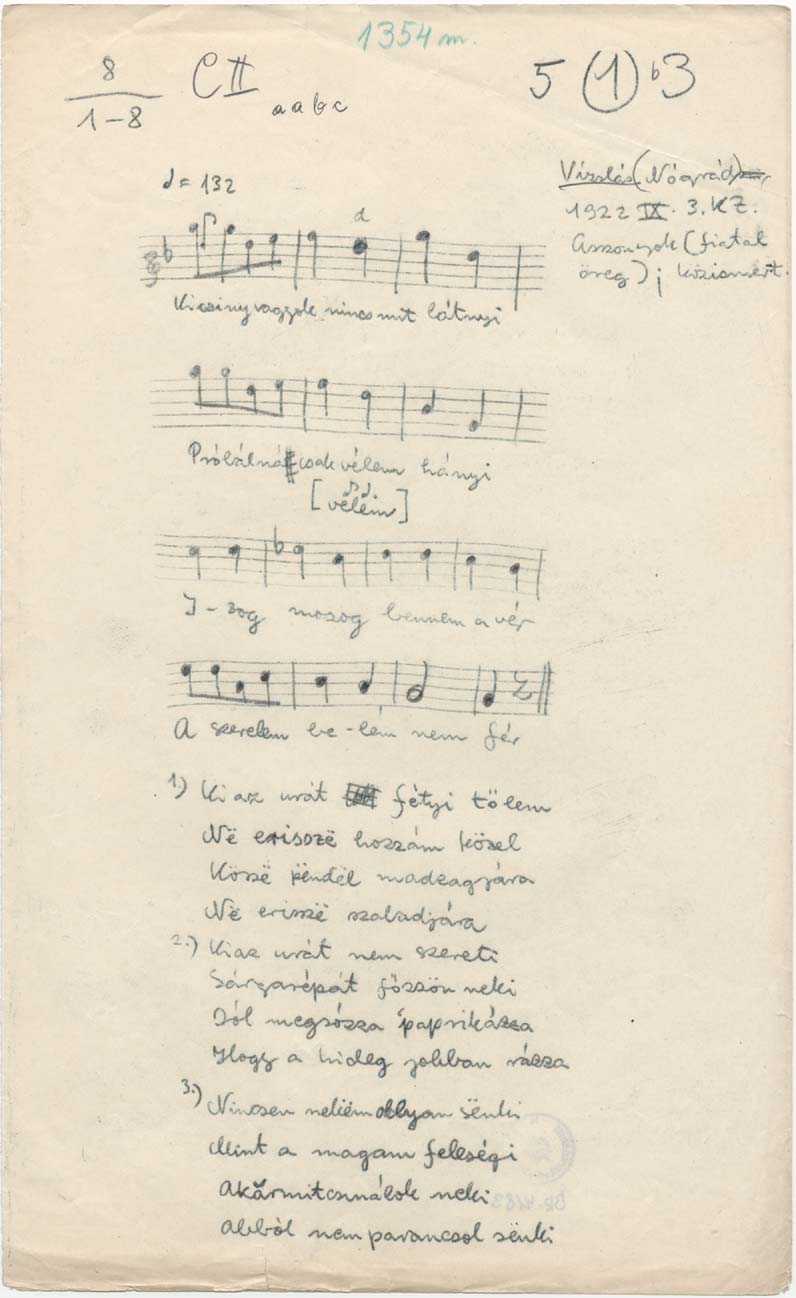 1354 m.
8
1-8
C II
a a b c
5 (1) b3
♩= 132
Vizslás (Nógrád)
1922 IX. 3. KZ.
Asszonyok (fiatal
öreg); közismert.
d
Kicsiny vagyok nincs mit látnyi
Próbálná csak vélem hányi
[vélëm]
I-zog mozog bennem a vér
A szerelem be-lém nem fér
1.) Ki az urát fétyi tőlem
Në erisszë hozzám közel
Kössë këndël madzagjára
Në erisszë szabadjára
2.) Ki az urát nem szereti
Sárgarépát főzzön neki
Jól megsózza paprikázza
Hogy a hideg jobban rázza
3.) Nincsen nekëm ollyan sënki
Mint a magam feleségi
Akármit csinálok neki
Abból nem parancsol sënki